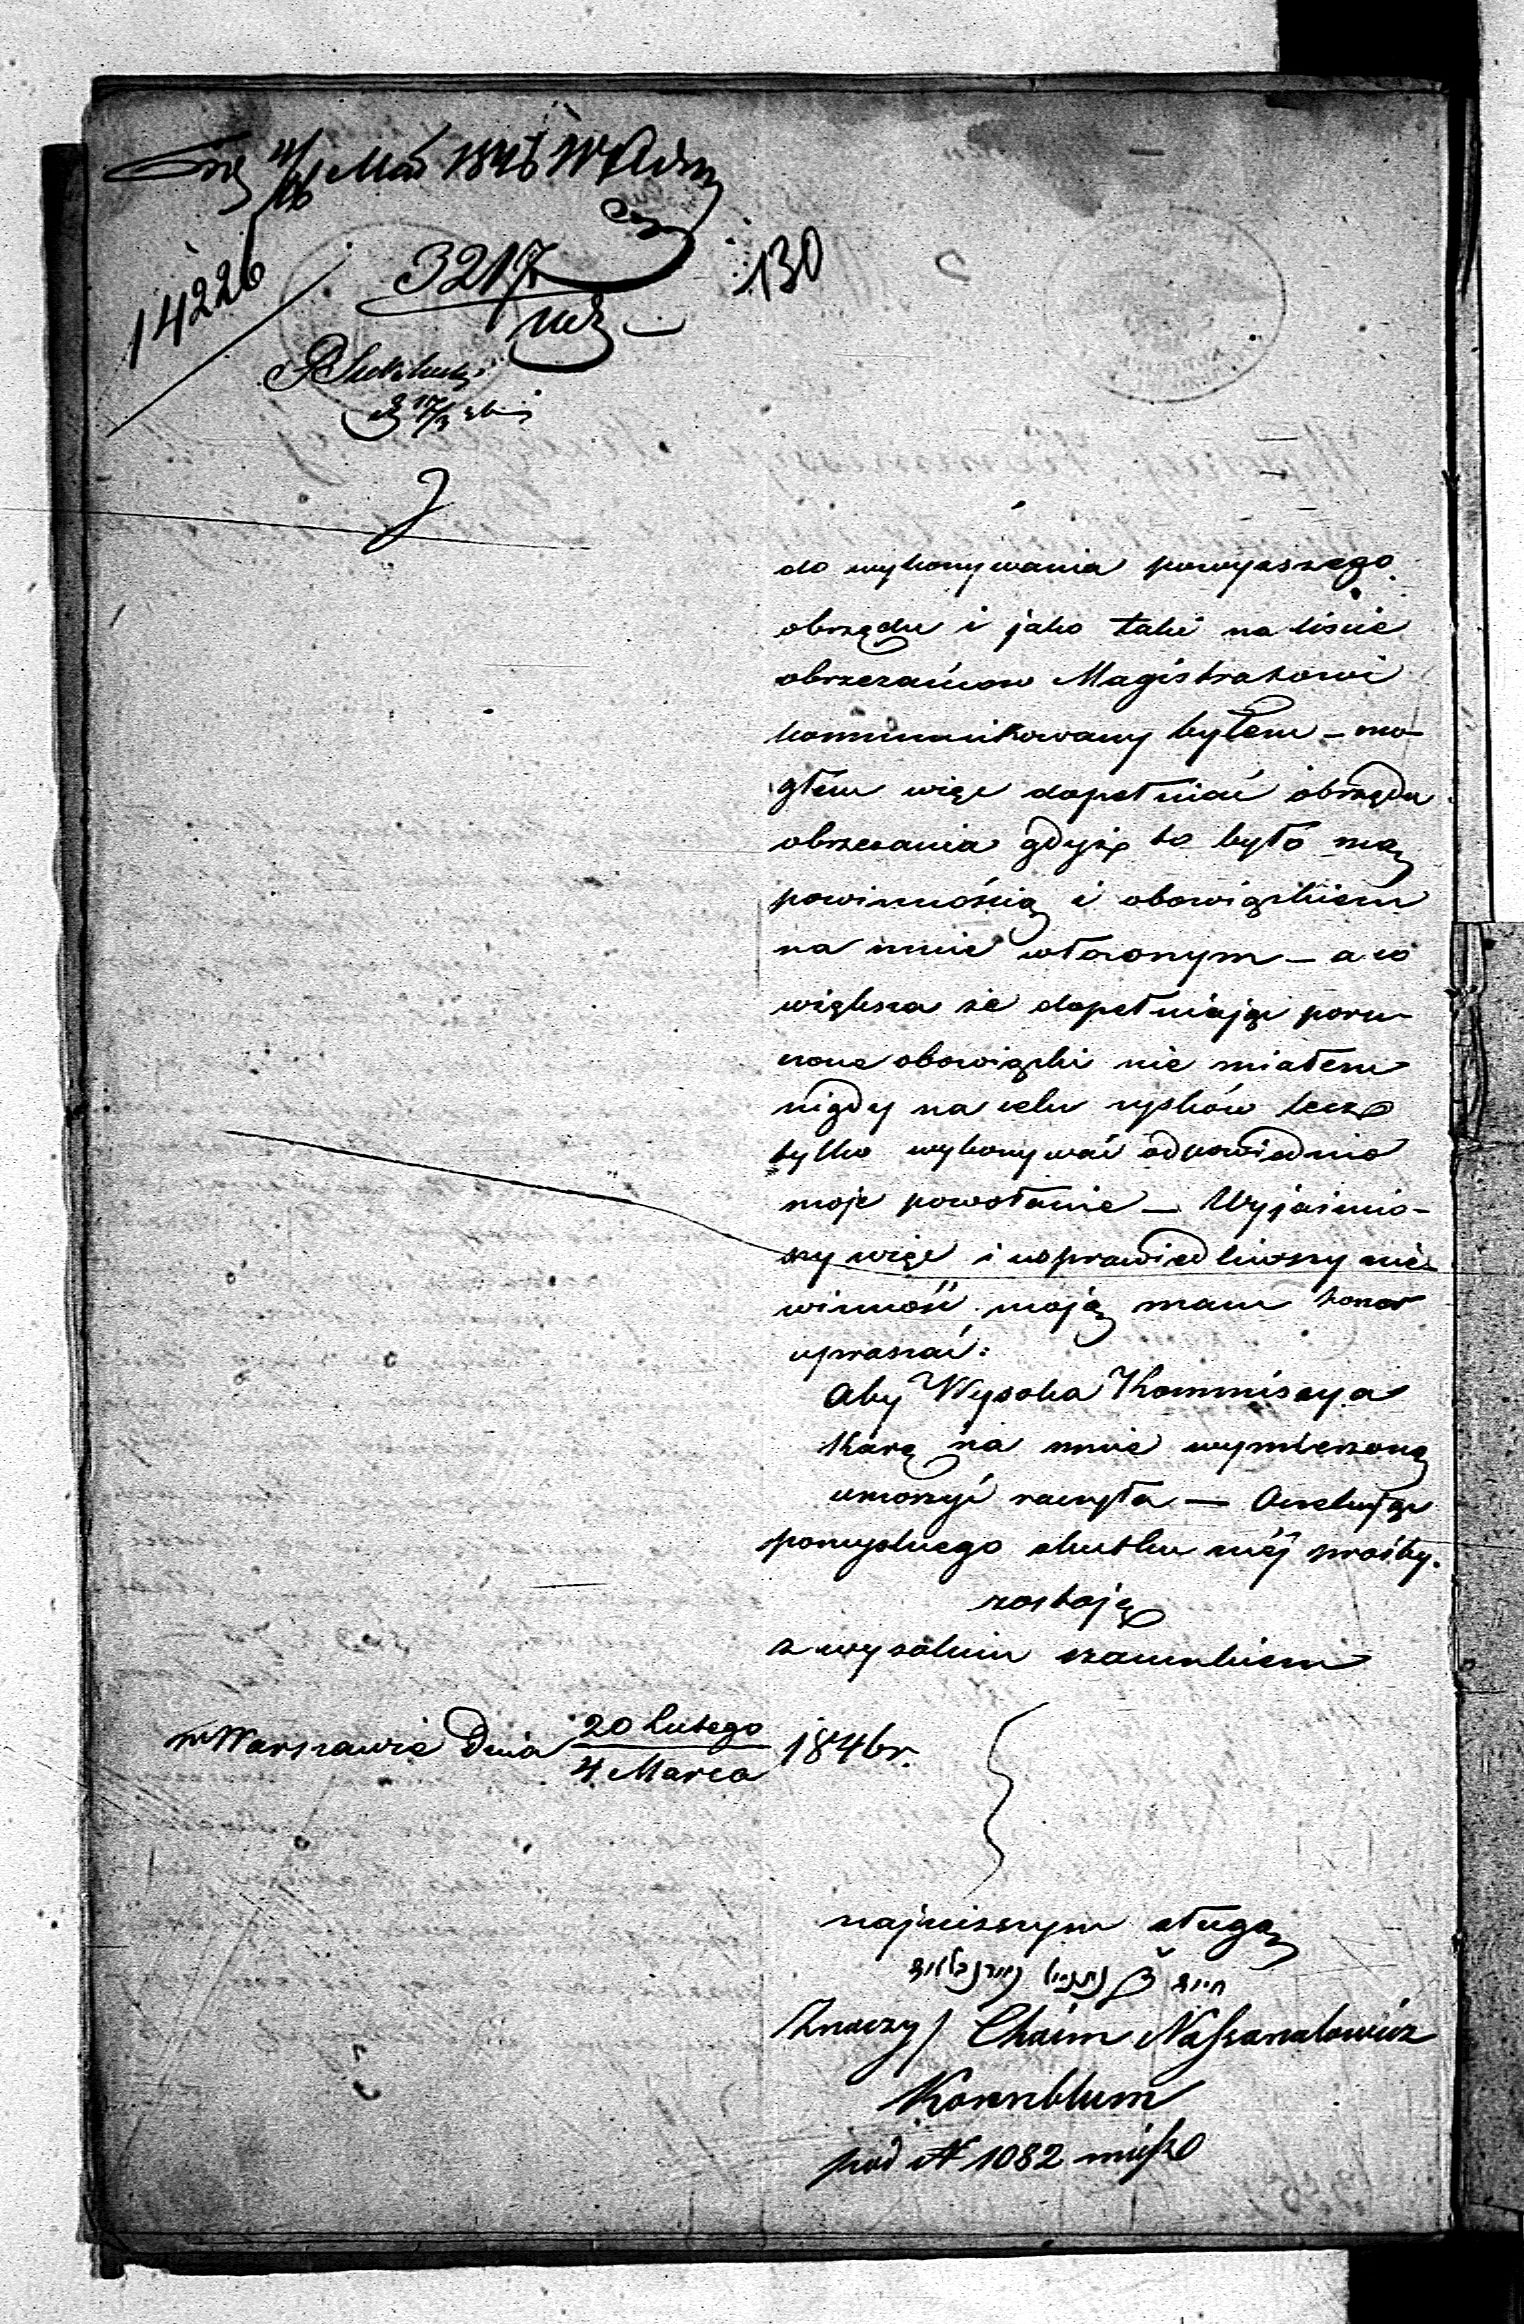 4/16 Mar 1846
14226
3217
130
do wykonywania powyższego
obrzędu i jako taki na liście
obrzezańców Magistratowi
kommunikowany byłem – mo-
głem więc dopełniać obrzędu
obrzezania gdyż to było mą
powinnością i obowiązkiem
na mnie włożonym – a co
większa że dopełniając poru-
czone obowiązki nie miałem
nigdy na celu zysków lecz
tylko wykonywać odpowiednio
moje powołanie – Wyjaśniw-
szy więc i usprawiedliwszy nie-
winność moją mam honor
upraszać:
Aby Wysoka Kommissya
Karę na mnie wymierzoną
umorzyć raczyła – Oczekując
pomyślnego skutku méj prośby.
zostaję
z wysokim szacunkiem
w Warszawie Dnia 20 Lutego / 4 Marca 1846 r.
najniższym sługą
חיים
Znaczy / Chaim Nassanalowicz
Kornblum
pod N 1082 mieszk